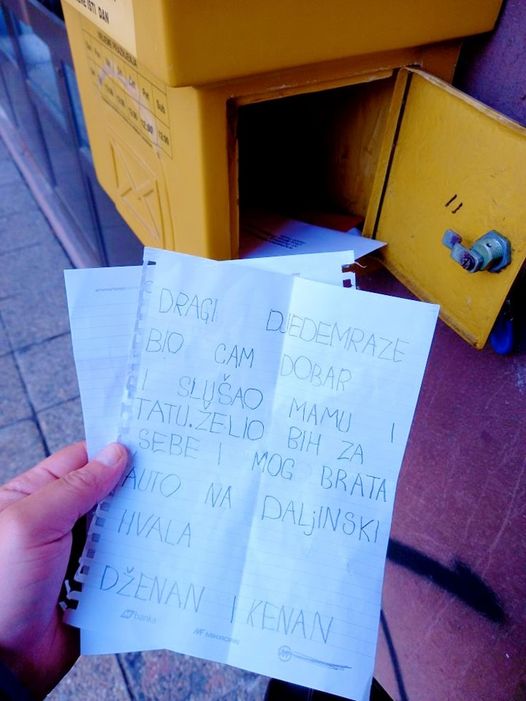 ISTI DAN
Pet Sub
DRAGI DJEDEMRAZE
BIO CAM DOBAR
I SLUŠAO MAMU I
TATU.ŽELIO BIH ZA
SEBE I MOG BRATA
AUTO NA DALjINSKI
HVALA
DŽENAN I KENAN
banka